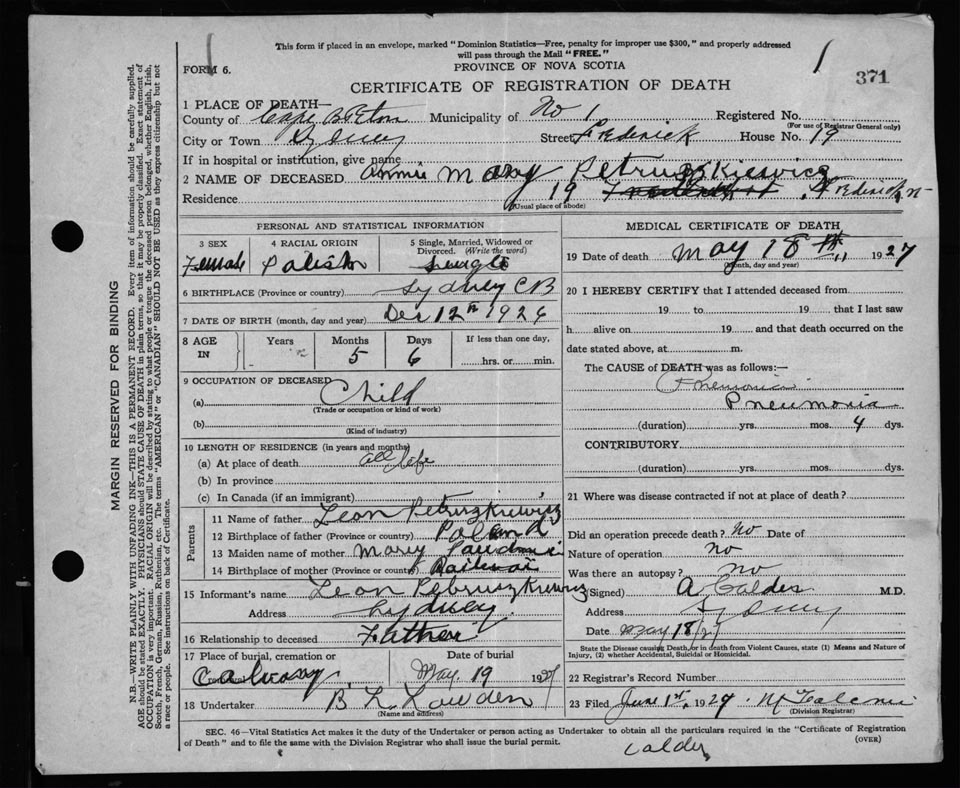 This form if placed in an envelope, marked "Dominion Statistics—Free, penalty for improper use $300," and properly addressed
will pass through the Mail "FREE."
FORM 6.
PROVINCE OF NOVA SCOTIA
371
CERTIFICATE OF REGISTRATION OF DEATH
1 PLACE OF DEATH—
County of Cape Breton Municipality of No 1 Registered No.
(For use of Registrar General only)
City or Town Sydney Street Frederick House No. 19
If in hospital or institution, give name
2 NAME OF DECEASED Annie Mary Petruzskiewicz
Residence 19 Frederick st
(Usual place of abode)
PERSONAL AND STATISTICAL INFORMATION
3 SEX 4 RACIAL ORIGIN 5 Single, Married, Widowed or Divorced. (Write the word)
Female Polish Single
6 BIRTHPLACE (Province or country) Sydney CB
7 DATE OF BIRTH (month, day and year) Dec 12th 1926
8 AGE IN Years Months Days If less than one day,
5 6 hrs. or min.
9 OCCUPATION OF DECEASED
(a) Child
(Trade or occupation or kind of work)
(b)
(Kind of industry)
10 LENGTH OF RESIDENCE (in years and months)
(a) At place of death all life
(b) In province
(c) In Canada (if an immigrant)
Parents
11 Name of father Leon Petruzkiewicz
12 Birthplace of father (Province or country) Poland
13 Maiden name of mother Mary
14 Birthplace of mother (Province or country)
15 Informant's name Leon Petruszkiewicz
Address Sydney
16 Relationship to deceased Father
17 Place of burial, cremation or Date of burial
Calvary May 19 1927
18 Undertaker B L Lowden
(Name and address)
MEDICAL CERTIFICATE OF DEATH
19 Date of death May 18th 1927
(Month, day and year)
20 I HEREBY CERTIFY that I attended deceased from
19 to 19 that I last saw
h alive on 19 and that death occurred on
date stated above, at m.
The CAUSE of DEATH was as follows:—
Pnemonia
Pneumonia
(duration) yrs. mos. 4 dys.
CONTRIBUTORY
(duration) yrs. mos. dys.
21 Where was disease contracted if not at place of death?
Did an operation precede death? No Date of
Nature of operation no
Was there an autopsy? No
(Signed) A Calder M.D.
Address Sydney
Date May 18/27
State the Disease causing Death, or in death from Violent Causes, state (1) Means and Nature of
Injury, (2) whether Accidental, Suicidal or Homicidal.
22 Registrar's Record Number
23 Filed June 1st 1927
(Division Registrar)
SEC. 46—Vital Statistics Act makes it the duty of the Undertaker or person acting as Undertaker to obtain all the particulars required in the "Certificate of Registration
of Death" and to file the same with the Division Registrar who shall issue the burial permit.
(OVER)
Calder
MARGIN RESERVED FOR BINDING
N.B.—WRITE PLAINLY WITH UNFADING INK—THIS IS A PERMANENT RECORD. Every item of information should be carefully supplied.
AGE should be stated EXACTLY. PHYSICIANS should STATE CAUSE OF DEATH in plain terms, so that it may be properly classified. Exact statement of
OCCUPATION is very important. RACIAL ORIGIN will be described by stating to what people or tongue the deceased person belonged, whether English, Irish,
Scotch, French, German, Russian, Ruthenian, etc. The terms "AMERICAN" or "CANADIAN" SHOULD NOT BE USED as they express citizenship but not
a race or people. See instructions on back of Certificate.